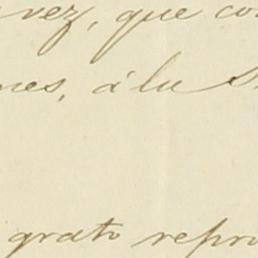 vez, que co
nes, á la S
grato repro